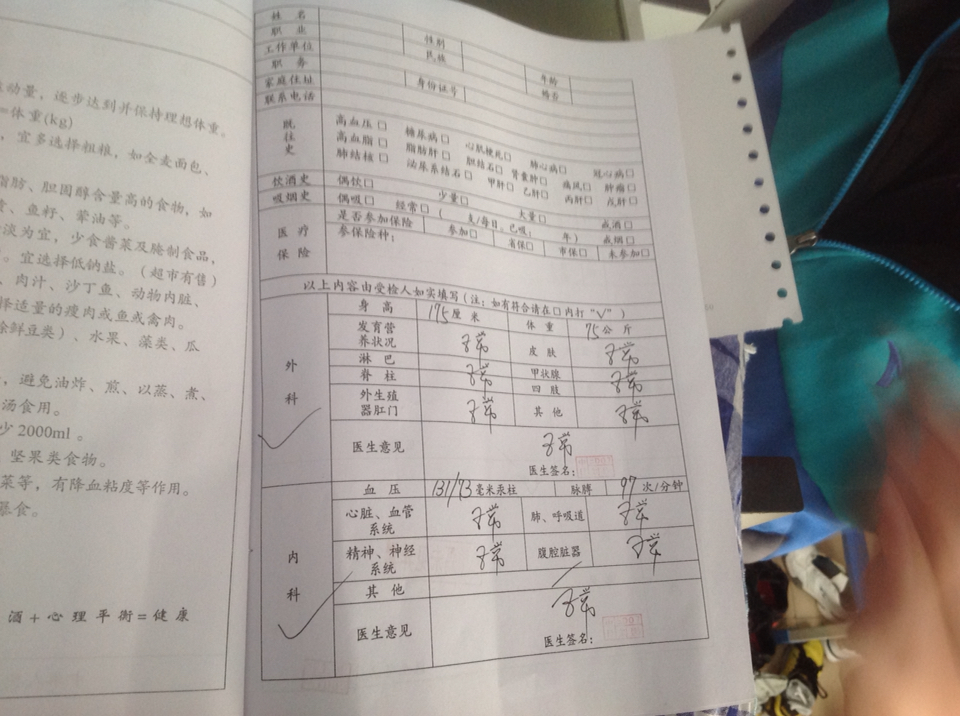 动量，逐步达到并保持理想体重。
=体重(kg)
宜多选择粗粮，如全麦面包、
脂肪、胆固醇含量高的食物，如
、鱼籽、荤油等。
淡为宜，少食酱菜及腌制食品，
。宜选择低钠盐。（超市有售）
、肉汁、沙丁鱼、动物内脏、
择适量的瘦肉或鱼或禽肉。
除鲜豆类）、水果、藻类、瓜
，避免油炸、煎、以蒸、煮、
汤食用。
少 2000ml 。
坚果类食物。
菜等，有降血粘度等作用。
暴食。
酒 + 心 理 平 衡 = 健 康
姓 名
职 业 性别
工作单位 民族
职 务 年龄
家庭住址 身份证号 婚否
联系电话
既往史
高血压□ 糖尿病□ 心肌梗死□ 肺心病□ 冠心病□
高血脂□ 脂肪肝□ 胆结石□ 骨囊肿□ 痛风□ 肿瘤□
肺结核□ 泌尿系结石□ 甲肝□ 乙肝□ 丙肝□ 戊肝□
饮酒史 偶饮□ 少量□ 大量□ 戒酒□
吸烟史 偶吸□ 经常□（ 支/每日。已吸： 年） 戒烟□
医疗保险
是否参加保险 参加□ 省保□ 市保□ 未参加□
参保险种：
以上内容由受检人如实填写（注：如有符合请在□内打“√”）
外科
身 高 175厘米 体 重 75公斤
发育营养状况 正常 皮 肤 正常
淋 巴 正常 甲状腺 正常
脊 柱 正常 四 肢 正常
外生殖器肛门 正常 其 他 正常
医生意见 正常
医生签名：
内科
血 压 131/73毫米汞柱 脉搏 97次/分钟
心脏、血管系统 正常 肺、呼吸道 正常
精神、神经系统 正常 腹腔脏器 正常
其 他
医生意见 正常
医生签名：